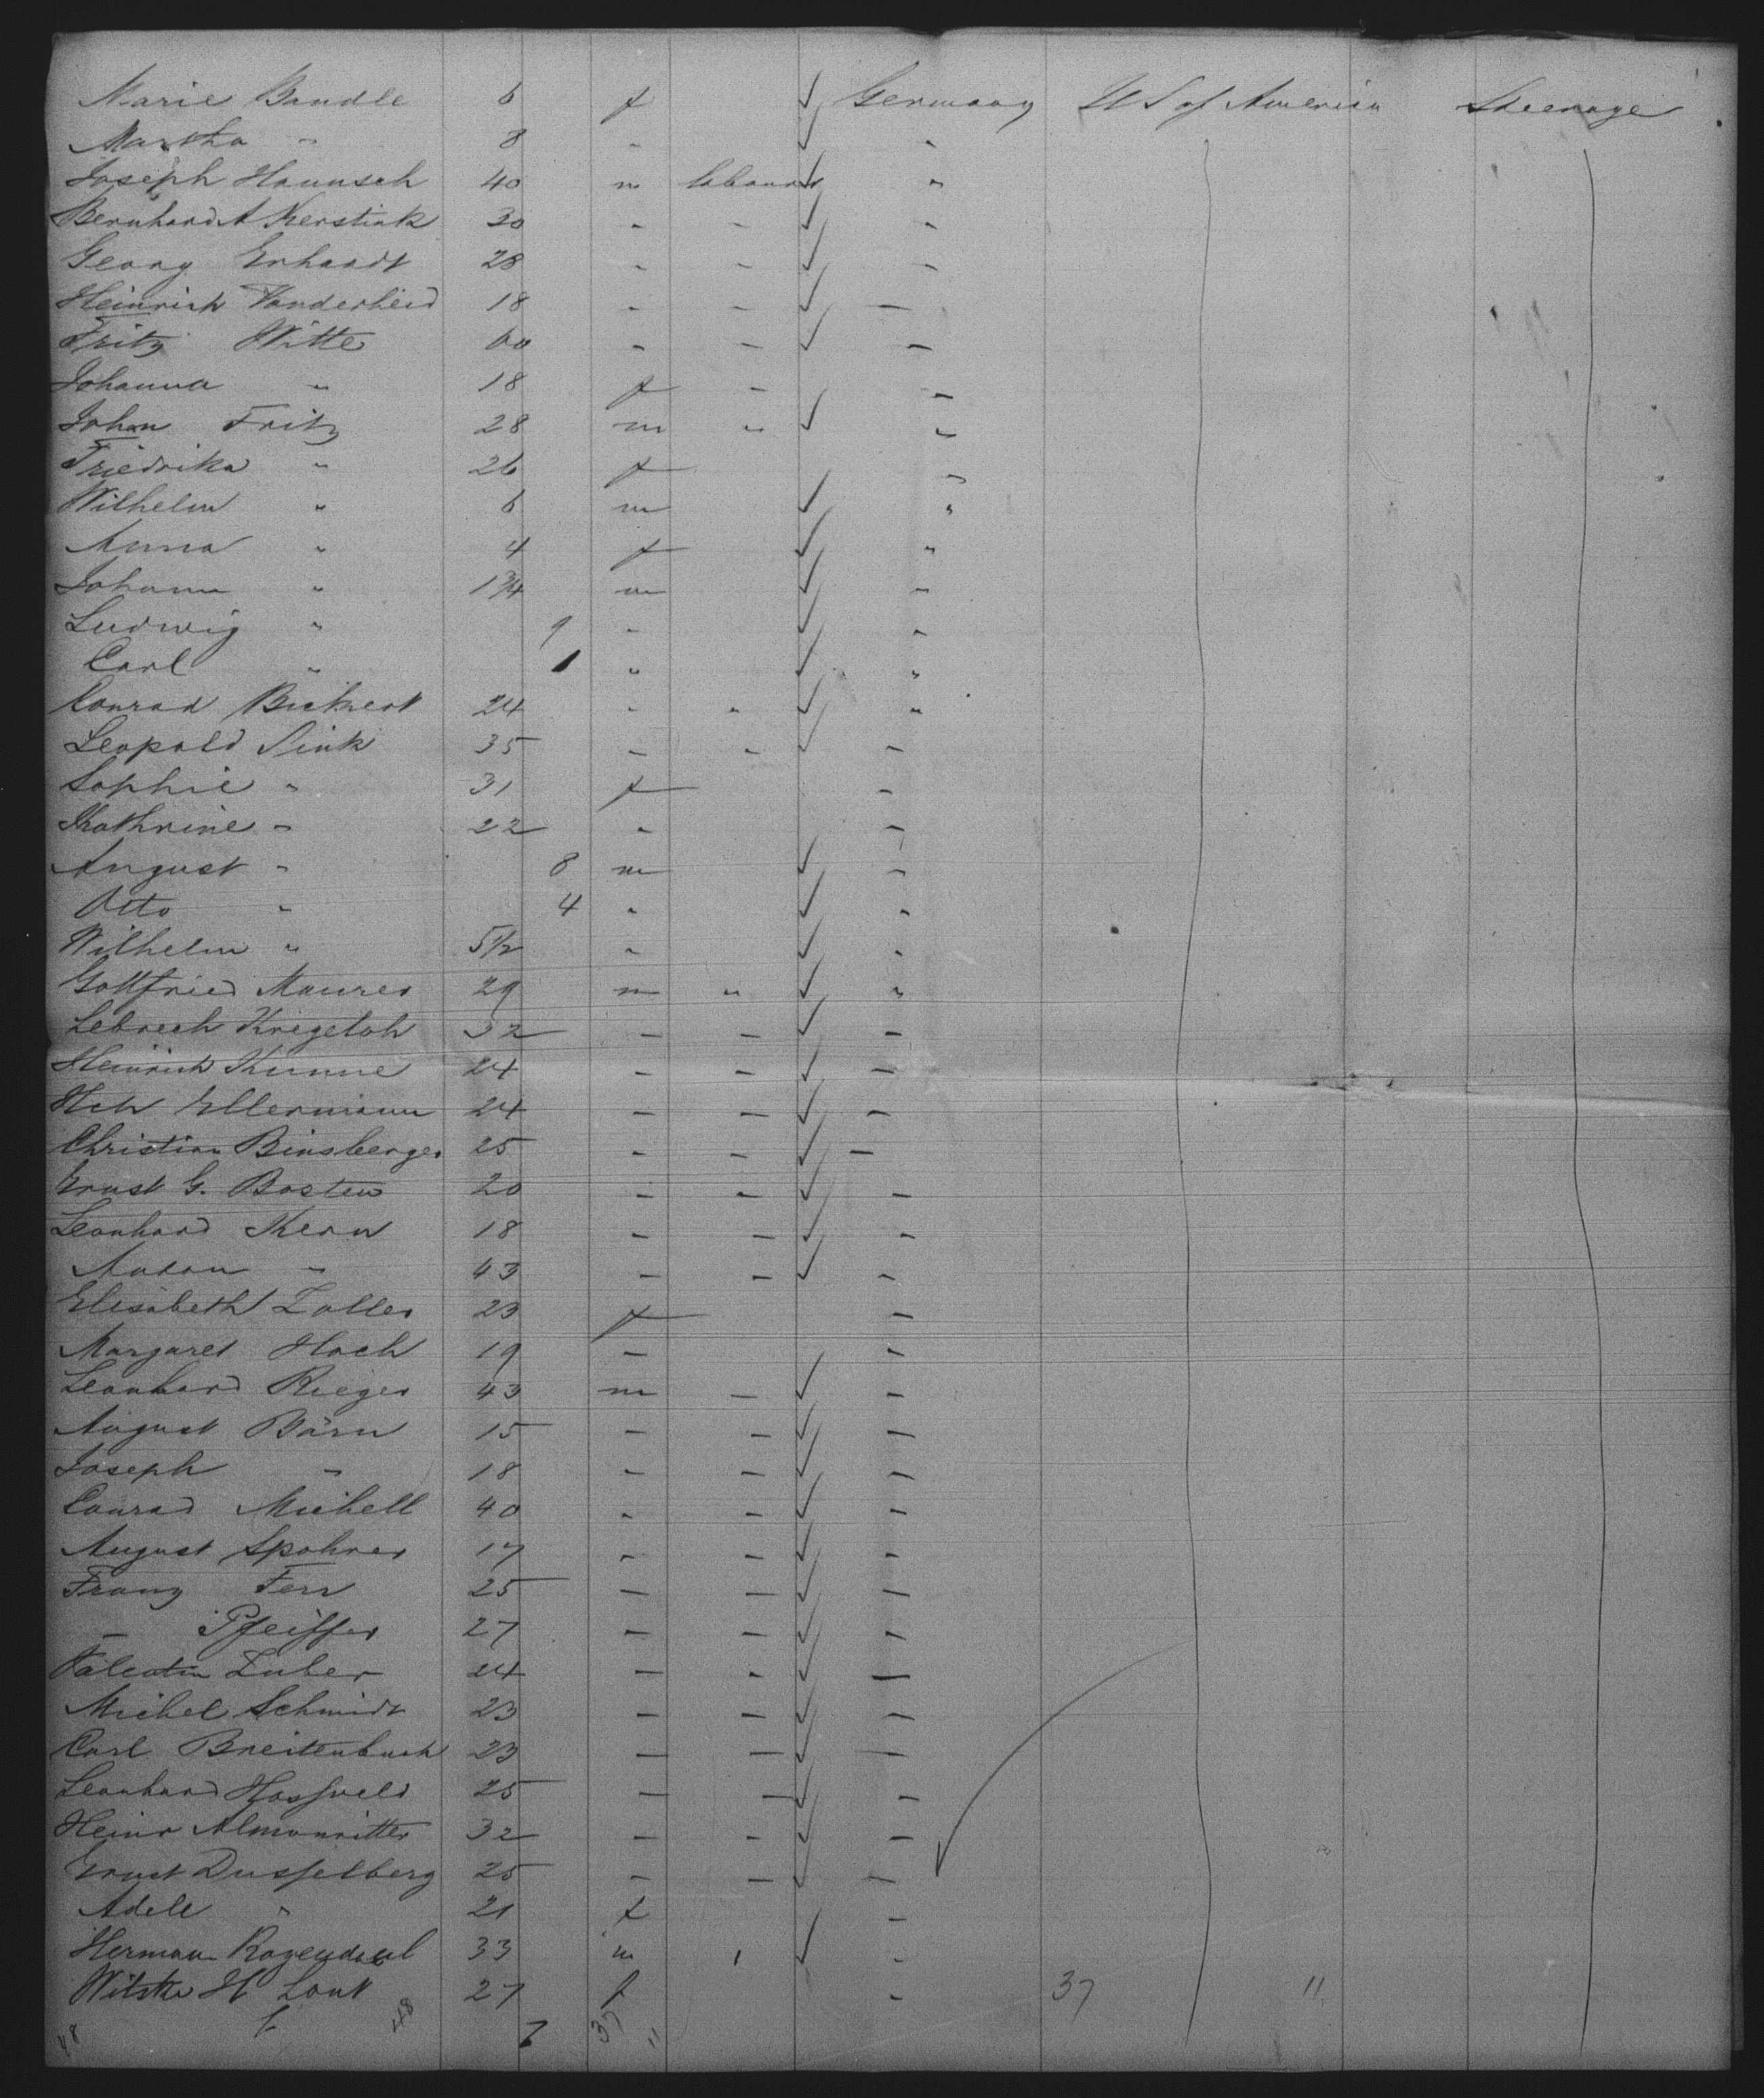 Marie Bandle 6 f ✓ Germany U S of America Steerage
Martha " 8 " ✓ "
Joseph Haunsch 40 m labourer ✓ "
Bernhard A Kerstiak 30 " " ✓ "
Georg Erhardt 28 " " ✓ "
Heinrich Vanderheid 18 " " ✓ "
Fritz Witte 60 " " ✓ "
Johanna " 18 f " "
Johan Fritz 28 m " ✓ "
Friedrika " 26 f "
Wilhelm " 6 m ✓ "
Anna " 4 f ✓ "
Johann " 1 3/4 m ✓ "
Ludwig " 9 " ✓ "
Carl " 1 " ✓ "
Conrad Bickert 24 " " ✓ "
Leopold Sink 35 " " ✓ "
Sophie " 31 f "
Kathrine " 22 " "
August " 8 m ✓ "
Otto " 4 " ✓ "
Wilhelm " 5 1/2 " ✓ "
Gottfried Maurer 29 m " ✓ "
Lebrech Krigeloh 32 " " ✓ "
Heinrich Kunne 24 " " ✓ "
Hch Ellermann 24 " " ✓ "
Christian Binsberger 25 " " ✓ "
Ernst G. Bosten 20 " " ✓ "
Leonhard Kern 18 " " ✓ "
" 43 " " ✓ "
Elisabeth Zoller 23 f "
Margaret Hoch 19 " "
Leonhard Rieger 43 m " ✓ "
August Bärn 15 " " ✓ "
Joseph " 18 " " ✓ "
Conrad Michell 40 " " ✓ "
August Spohrer 17 " " ✓ "
Franz Ferr 25 " " ✓ "
" Pfeiffer 27 " " ✓ "
Valentin Zuber 24 " " ✓ "
Michel Schmidt 23 " " ✓ "
Carl Breitenbach 23 " " ✓ "
Leonhard Hossfeld 25 " " ✓ "
Heinr Almonritter 32 " " ✓ "
Ernst Dusselberg 25 " " ✓ "
Adele " 21 f "
Herman Rogendahl 33 m " ✓ "
H Lout 27 f " 37 11
48 48 7 37 11